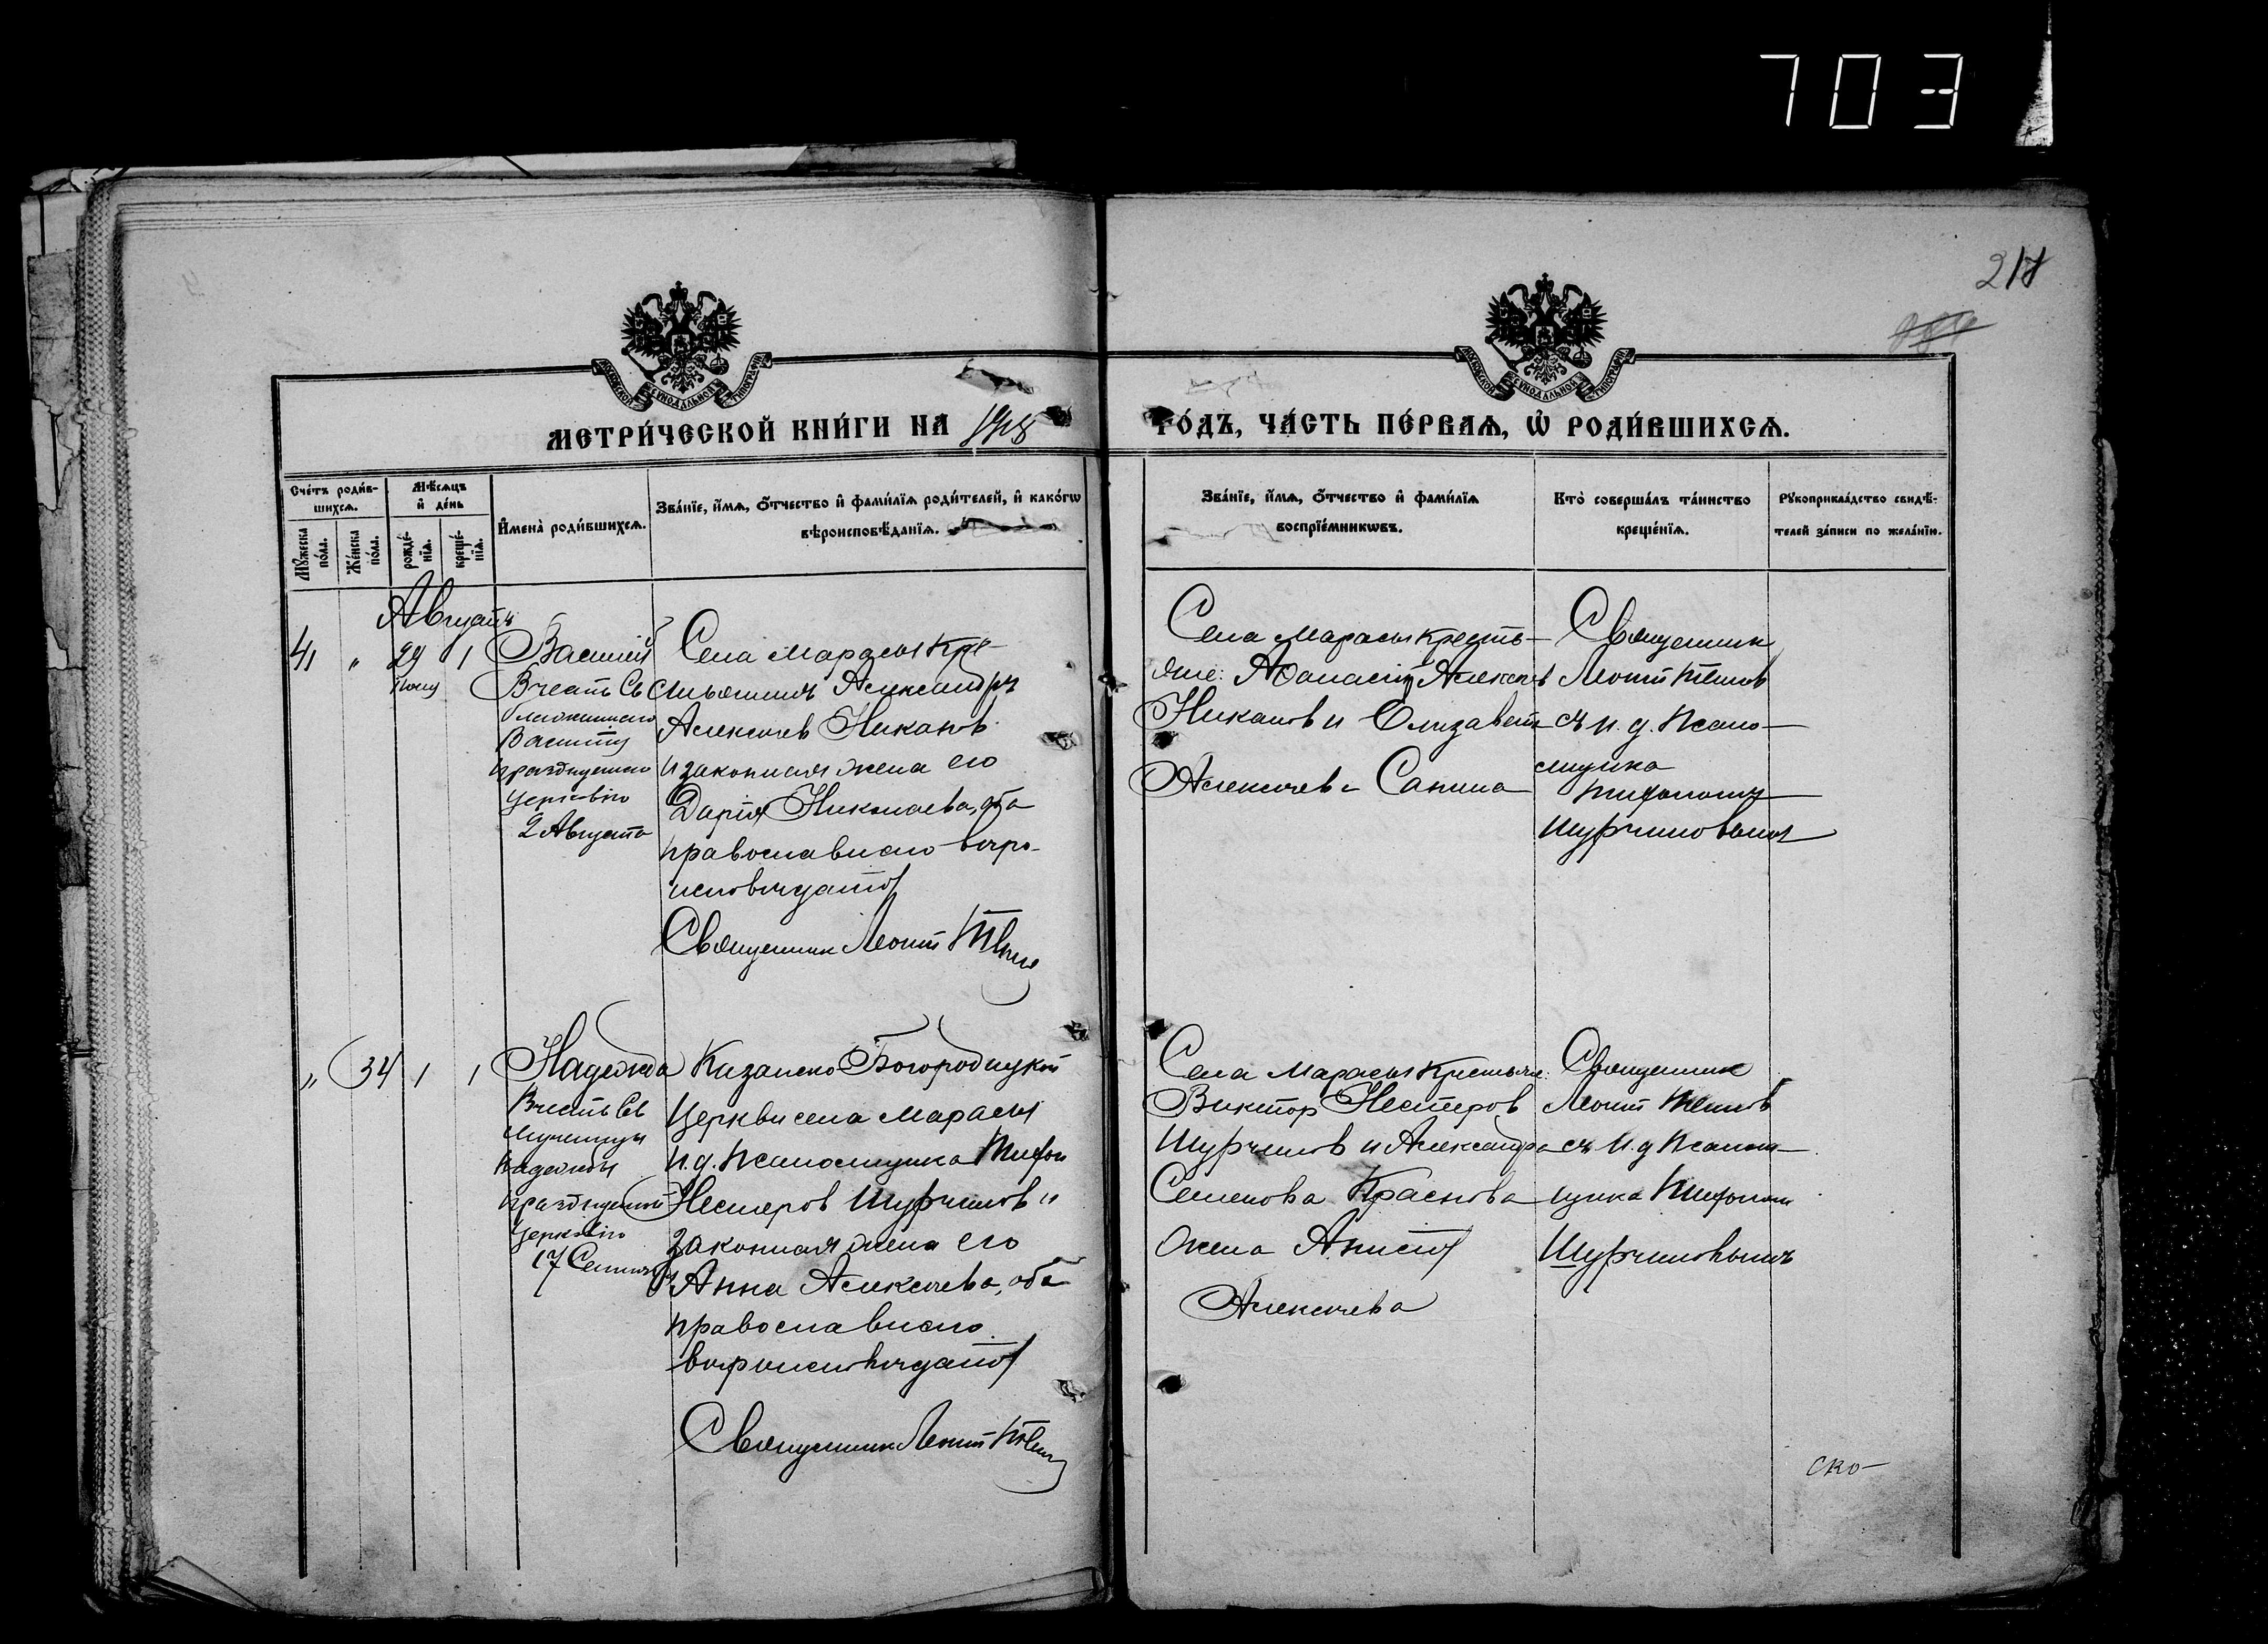 703
217
МЕТРИ́ЧЕСКОЙ КНИ́ГИ НА 1918 ГО́ДЪ, ЧА́СТЬ ПЕ́РВАѦ, Ѡ҆ РОДИ́ВШИХСѦ.
Сче́тъ роди́в-
шихсѧ.
Мꙋ́жеска по́ла.
Же́нска по́ла.
Мѣ́сѧцъ
и҆ де́нь
рожде́-
нїѧ.
креще́-
нїѧ.
И҆мена̀ роди́вшихсѧ.
Зва́нїе, и҆́мѧ, ѻ҆́тчество и҆ фами́лїѧ роди́телей, и҆ како́гѡ
вѣроисповѣ́данїѧ.
Зва́нїе, и҆́мѧ, ѻ҆́тчество и҆ фами́лїѧ
воспрїе́мникѡвъ.
Кто̀ соверша́лъ та́инство
креще́нїѧ.
Рꙋкоприкла́дство свидѣ́-
телей за́писи по жела́нїю.
Августъ
41 " 29 1
Июля
Василий
В честь Св
блаженнаго
Василія
празднуемаго
Церковію
2 Августа
Села Марасы Кре-
стьянинъ Александръ
Алексѣев Никанов
и законная жена его
Дарія Николаева, оба
православнаго вѣро-
исповѣданія
Священник Леонтій
Села Марасы кресть-
яне: Аѳанасій Алексѣев
Никанов и Елизавета
Алексѣева Санина
Священник
Леонтій
съ и. д. псало-
мщика
Трифоном
Шурчиловымъ
" 34 1 1
Надежда
В честь Св
Мученицы
Надежды
празднуемой
Церковію
17 Сентября
Казанско-Богородицкой
Церкви села Марасы
и. д. псаломщика Трифон
Нестеров Шурчилов и
законная жена его
Анна Алексѣева, оба
православнаго
вѣроисповѣданія
Священник Леонтій
Села Марасы крестьяне:
Виктор Нестеров
Шурчилов и Александра
Семенова Краснова
жена Анисія
Алексѣева
Священник
Леонтій
съ и. д псалом-
щика Трифоном
Шурчиловымъ
ско-